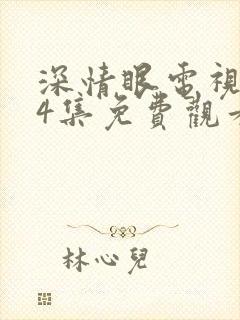 深情眼電視
4集免費觀
林心兒